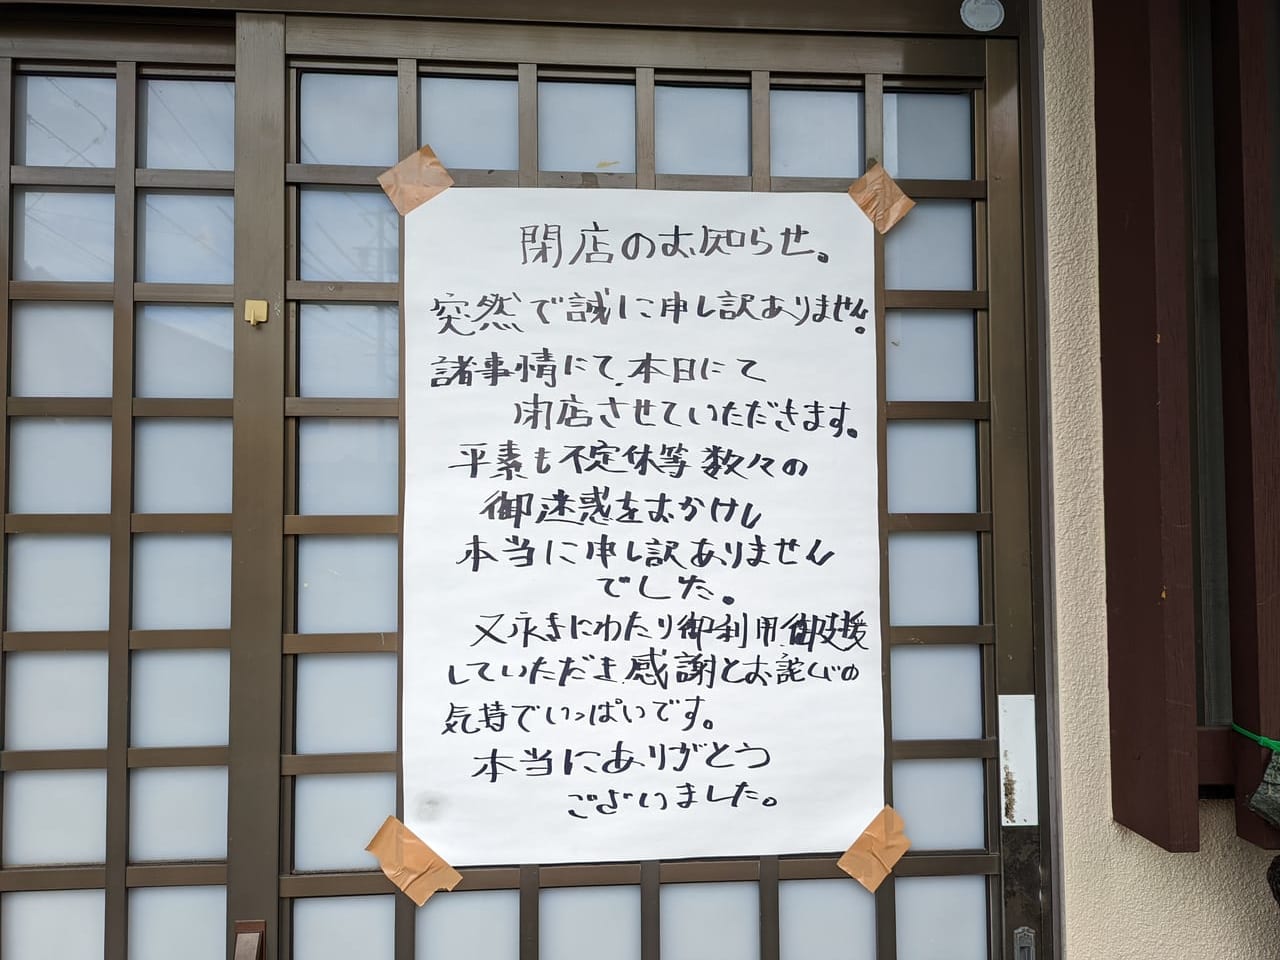 閉店のお知らせ。
突然で誠に申し訳ありません。
諸事情にて、本日にて
閉店させていただきます。
平素も不定休等数々の
御迷惑をおかけし
本当に申し訳ありません
でした。
又永きにわたり御利用、御支援
していただき感謝とお詫びの
気持でいっぱいです。
本当にありがとう
ございました。